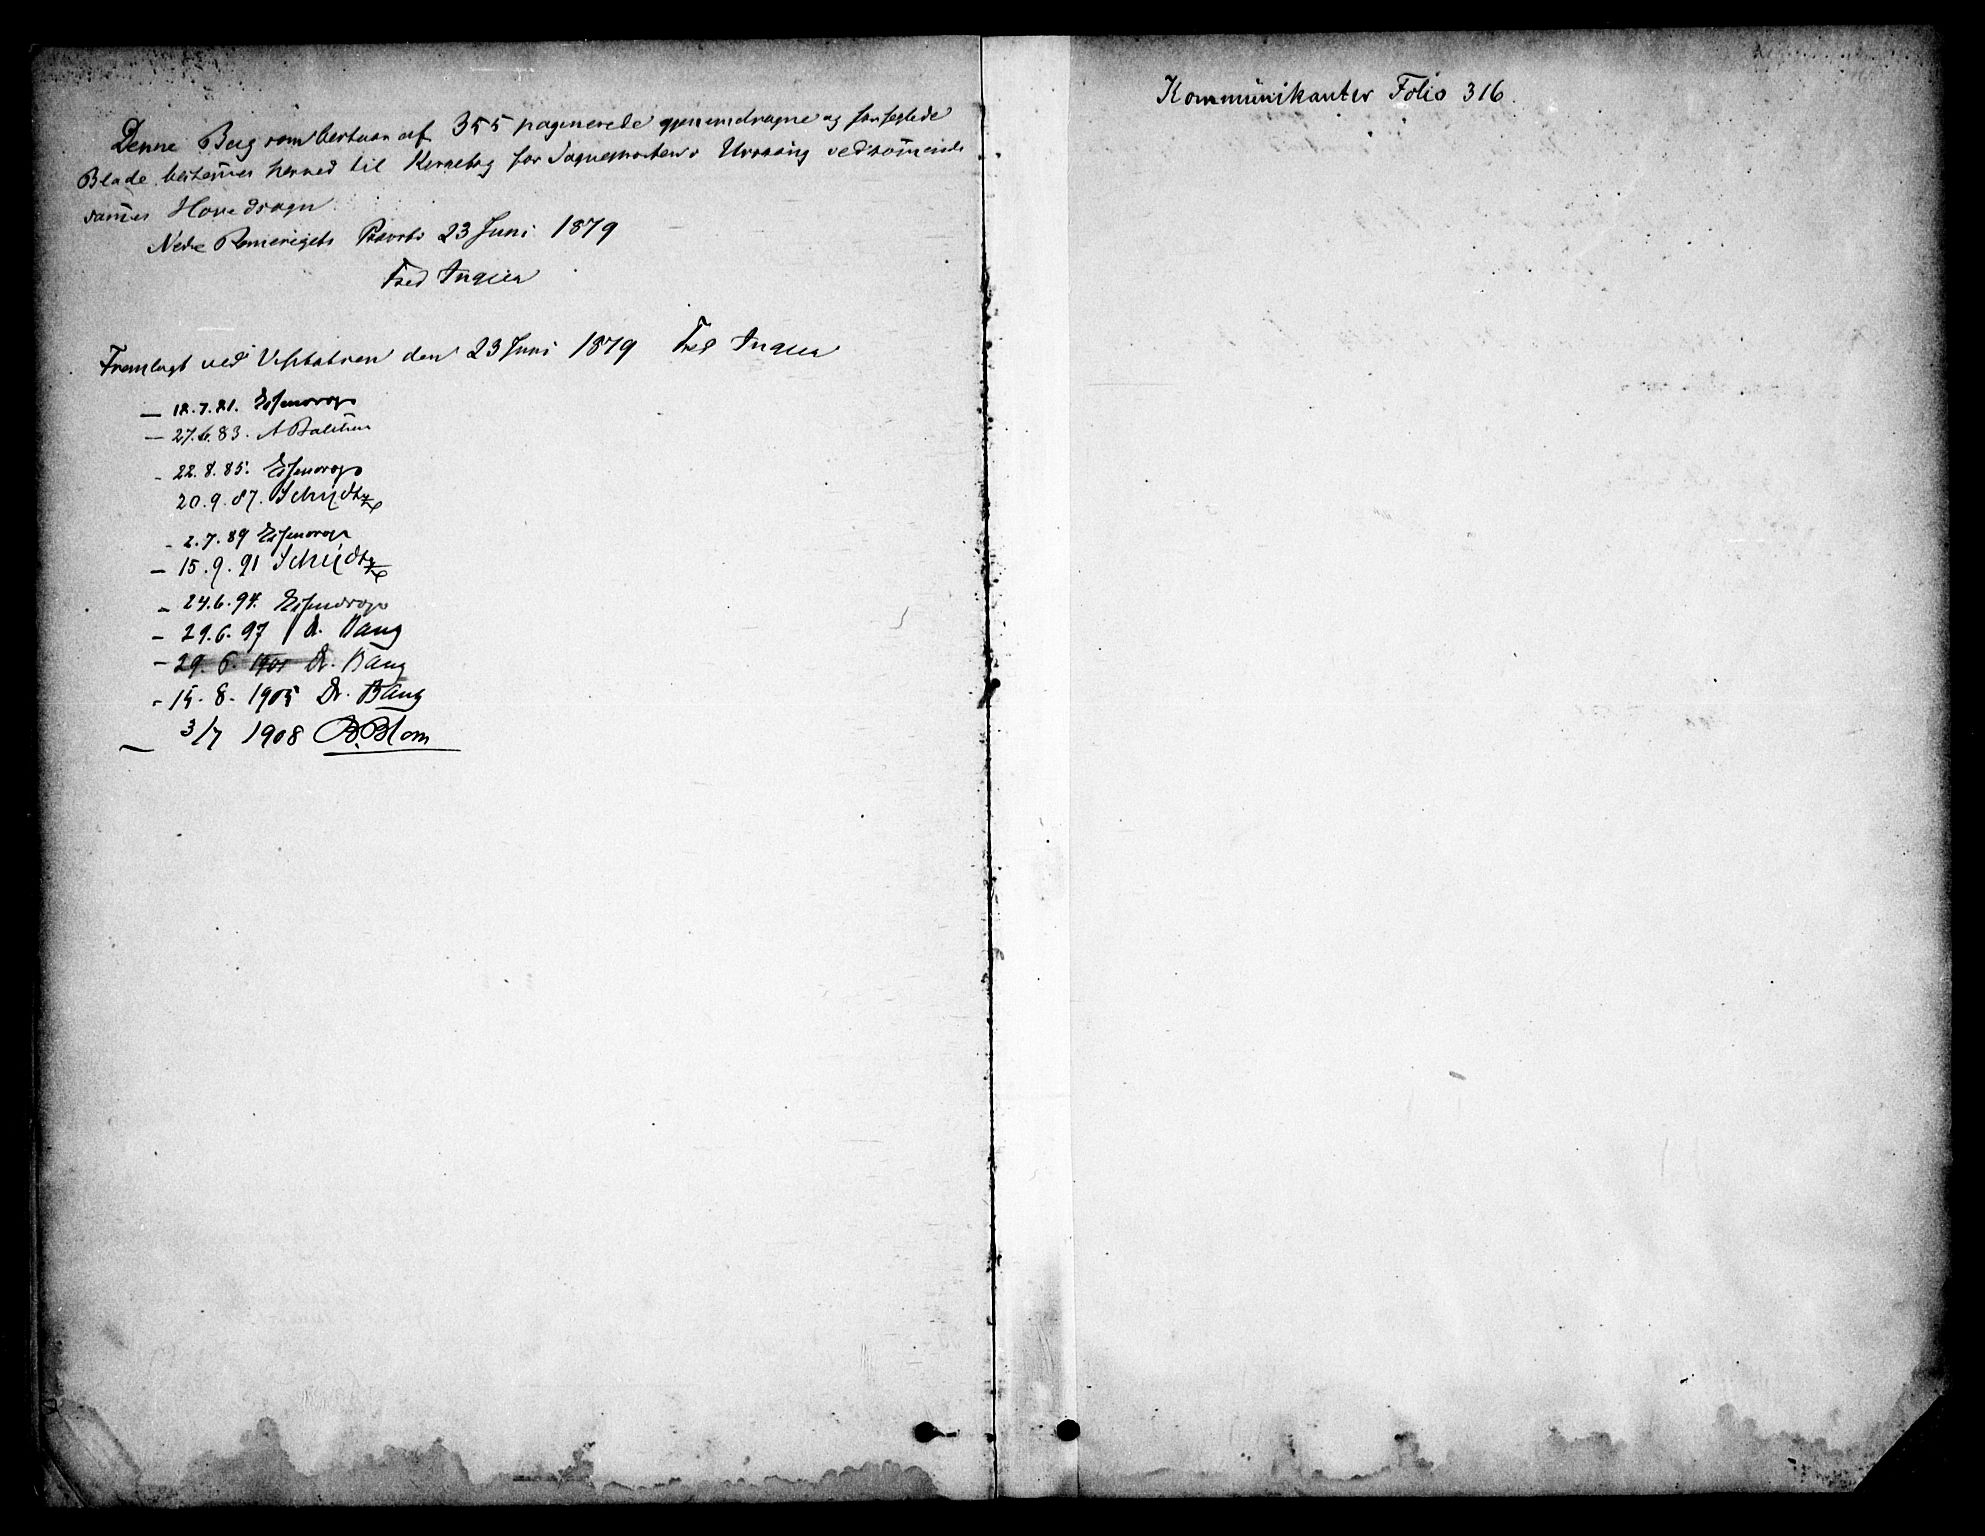 Denne Bog som bestaar af 355 paginerede gjennemdragne og forseglede
Blade bestemes herved til Kirkebog for Sognepresten i Urskoug vedkomende
sames Hovedsogn
Nedre Romerigets Provsti 23 Juni 1879
Fred Ingier
Fremlagt ved Visitatsen den 23 Juni 1879 Fred Ingier
— 12.7.81. Essendrop
— 27.6.83.
- 22.8.85. Essendrop
20.9.87.
- 2.7.89 Essendrop
— 15.9.91
- 24.6.94. Essendrop
- 29.6.97 A. Bang
- 29. 6. 1901 Dr. Bang
- 15. 8. 1905 Dr. Bang
— 3/7 1908 B. Blom
Kommunikanter Folio 316.